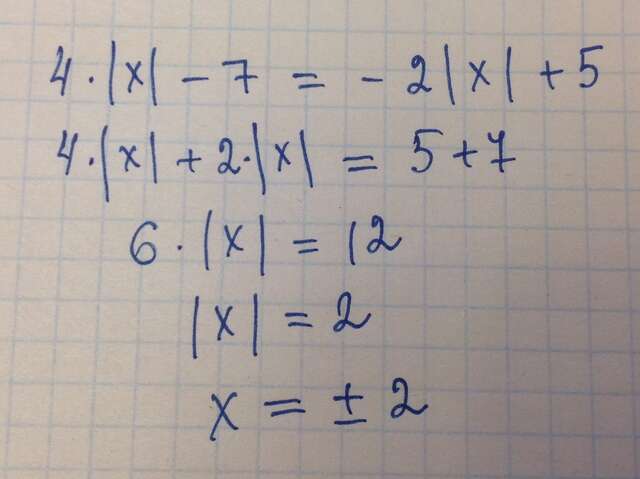 4·|x| - 7 = - 2|x| + 5
4·|x| + 2·|x| = 5+7
6·|x| = 12
|x| = 2
x = ± 2